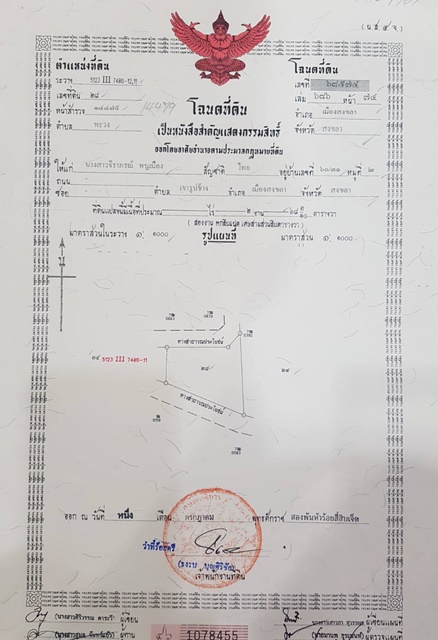 (น.ส.๔ จ.)
ตำแหน่งที่ดิน
โฉนดที่ดิน
ระวาง 5123 III 7480-12,11
เลขที่ดิน ๒๘
หน้าสำรวจ 14479
ตำบล พะวง
เลขที่ ๖๘๕๗๔
เล่ม ๖๘๖ หน้า ๗๔
อำเภอ เมืองสงขลา
จังหวัด สงขลา
โฉนดที่ดิน
เป็นหนังสือสำคัญแสดงกรรมสิทธิ์
ออกโดยอาศัยอำนาจตามประมวลกฎหมายที่ดิน
ให้แก่ นางสาวธีราภรณ์ หนูเมือง สัญชาติ ไทย อยู่บ้านเลขที่ หมู่ที่ ๒
ถนน
ซอย ตำบล เขารูปช้าง อำเภอ เมืองสงขลา จังหวัด สงขลา
ที่ดินแปลงนี้มีเนื้อที่ประมาณ ไร่ ๒ งาน ตารางวา
(สองงาน หกสิบแปด เศษสามส่วนสิบตารางวา)
มาตราส่วนในระวาง ๑: ๑๐๐๐
รูปแผนที่
มาตราส่วน ๑: ๑๐๐๐
ทางสาธารณประโยชน์
5123 III 7480-11
๒๘
๒๙
ทางสาธารณประโยชน์
ออก ณ วันที่ หนึ่ง เดือน กรกฎาคม พุทธศักราช สองพันห้าร้อยสี่สิบเจ็ด
ว่าที่ร้อยตรี
เจ้าพนักงานที่ดิน
ผู้เขียน
ผู้ทาน
1078455
ผู้เขียนแผนที่